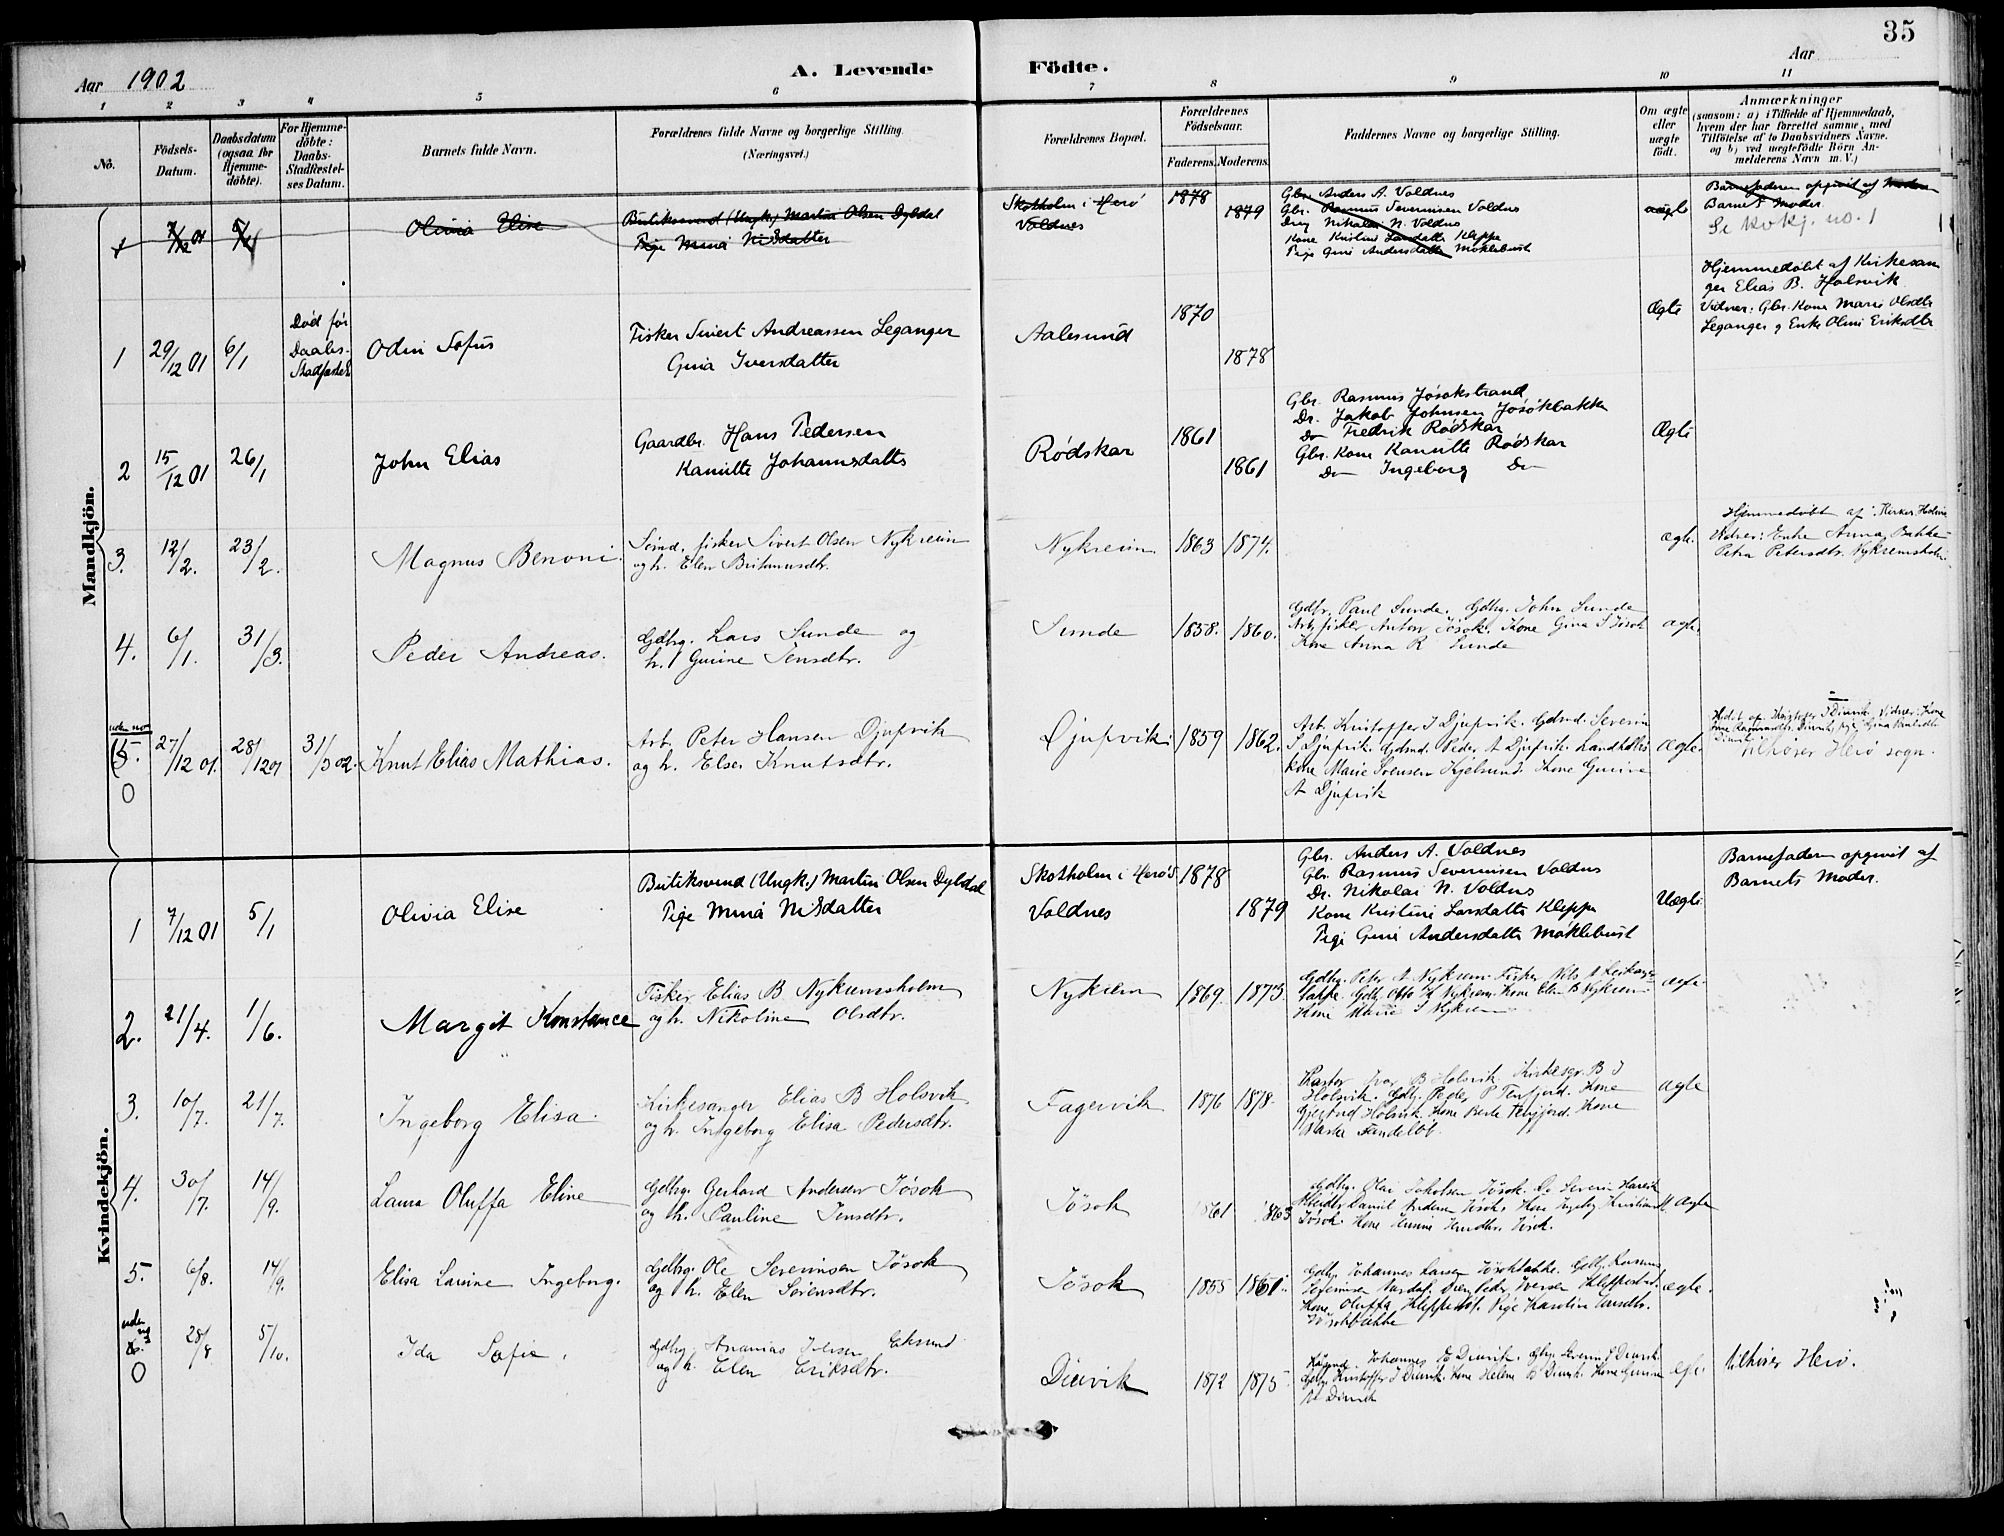 35
Aar 1902
A. Levende Födte.
Aar
1 2 3 4 5 6 7 8 9 10 11
Nô.
Födsels-Datum.
Daabsdatum (ogsaa for Hjemme-döbte).
For Hjemme-döbte: Daabs-Stadfæstel-ses Datum.
Barnets fulde Navn.
Forældrenes fulde Navne og borgerlige Stilling. (Næringsvei.)
Forældrenes Bopæl.
Forældrenes Födselsaar.
Faderens. Moderens.
Faddernes Navne og borgerlige Stilling.
Om ægte eller uægte födt.
Anmærkninger
(saasom: a) i Tilfælde af Hjemmedaab, hvem der har forrettet samme, med Tilföielse af to Daabsvidners Navne. og b) ved uegtefödte Börn An-melderens Navn m. V.)
Mandkjön.
Olivia Elise
Butiksvend (Ungk.) Martin Olsen Dyldal
Pige Mina Nilsdatter
Skotholm i Herö
Voldnes
1878
1879
Gbr. Anders A. Voldnes
Gbr. Rasmus Severinsen Voldnes
Dreng Nikolai N. Voldnes
Kone Kristine Larsdatter Kleppe
Pige Gine Andersdatter Möklebust
uægte
Barnefaderen opgivet af
Barnets Moder
Se kvkj. no. 1
1 29/12 01 6/1
Död för
Daabs-
Stadfæstel.
Odin Sofus
Fisker Sivert Andreassen Leganger
Gina Iversdatter
Aalesund
1870
1878
Ægte
Hjemmedöbt af Kirkesan
ger Elias B. Holsvik
Vidner: Gbr. Kone Marie Olsdtr
Leganger og Enke Oline Eriksdtr
2 15/12 01 26/1
John Elias
Gaardbr. Hans Pedersen
Kanutte Johannesdatter
Rødskar
1861
1861
Gbr. Rasmus Jösokstrand
Dr. Jakob Johnsen Jösökbakke
Do Fredrik Rødskar
Gbr. Kone Kanutte Rødskar
Do Ingeborg Do
Ægte
3. 12/2. 23/2.
Magnus Benoni.
Sömd. fisker Sivert Olsen Nykreim
og h. Elen
Nykreim
1863 1874.
ægte.
Hjemmedöbt af
Vidner: Enke Anna Bakke
Petra Petersdtr. Nykremsholm.
4. 6/1. 31/3.
Peder Andreas.
Gdbg. Lars Sunde og
h. Gurine Jensdtr.
Sunde
1858. 1860.
Gdbr. Paul Sunde. Gdbg. John Sunde
Arb. fisker Anton Jösok. Kone Gina S Jösok
Kone Anna R Sunde
ægte.
uden no
5. 27/12 01. 28/12 01 31/3 02.
Knut Elias Mathias.
Arb. Peter Hansen Djupvik
og h. Else Knutsdtr.
Djupvik.
1859 1862.
Arb. Kristoffer J Djupvik. Gdmd. Severin
S Djupvik. Gdmd. Peder A Djupvik. Landhdlrs
kone Marie Sörensen Kjelsund. Kone Gurine
A Djupvik
ægte.
tilhörer Herö sogn.
Kvindekjön.
1 7/12 01 5/1
Olivia Elise
Butiksvend (Ungk.) Martin Olsen Dyldal
Pige Mina Nilsdatter
Skotholm i Herö S
Voldnes
1878
1879
Gbr. Anders A. Voldnes
Gbr. Rasmus Severinsen Voldnes
Dr. Nikolai N. Voldnes
Kone Kristine Larsdatter Kleppe
Pige Gine Andersdatter Möklebust
Uægte
Barnefaderen opgivet af
Barnets Moder.
2. 21/4. 1/6.
Margit Konstance
Fisker Elias B. Nykremsholm
og h. Nikoline Olsdtr.
Nykrem
1869. 1873.
Gdbg. Peter A Nykrem. Fisker Nils A
Gdbg Otto K Nykrem. Kone Elen B Nykrem
Kone Marie S Nykrem
ægte
3. 10/7. 21/7.
Ingeborg Elisa.
Kirkesanger Elias B Holsvik
og h. Ingeborg Elisa Pedersdtr.
Fagervik
1876 1878.
Pastor Ivar B Holsvik. Kirkesgr. B J
Holsvik. Gdbg. Peder P Tenfjord. Kone
Gjertrud Holsvik. Kone Berte Tenfjord. Kone
ægte
4. 30/7. 14/9.
Laura Oluffa Eline
Gdbrg. Gerhard Andersen Jösok
og h. Pauline Jensdtr.
Jösok
1861 1863
Gdbg. Olai Jakobsen Jösok. Do Severin Hareide
Arbeider Daniel Andersen Jösok. Kone Ingeborg Kristiansd.
Jösok. Kone Knudtsdtr. Jösok.
Ægte
5. 6/8. 14/9.
Elisa Laurine Ingeborg.
Gdbrg. Ole Severinsen Jösok
og h. Elen Sörensdtr.
Jösok
1855 1861.
Gdbg. Johannes Larsen Jösokbakke. Gdbg. Rasmus
Peder Iversen Kleppestrd.
Kone Oluffa Kleppestrd. Pige Karoline Larsdtr.
Jösokbakke
ægte.
uden
no
6. 28/8 5/10.
Ida Sofie.
Gdbg. Ananias Iversen Eksund
og h. Elen Eriksdtr.
Djupvik
1872 1875
Johannes
Gdbg. Kristoffer J Djupvik. Kone Helene B Djupvik. Kone Gurine
A Djupvik
ægte.
tilhörer Herö.